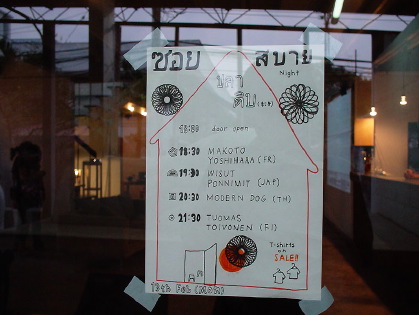 ซอย สบาย
Night
ปลา
ดิบ
18:00 door open
18:30 MAKOTO
YOSHIHARA (FR)
19:30 WISUT
PONNIMIT
20:30 MODERN DOG (TH)
21:30 TUOMAS
TOIVONEN (FI)
T-shirts
on
SALE!!
13th Feb (Mon)